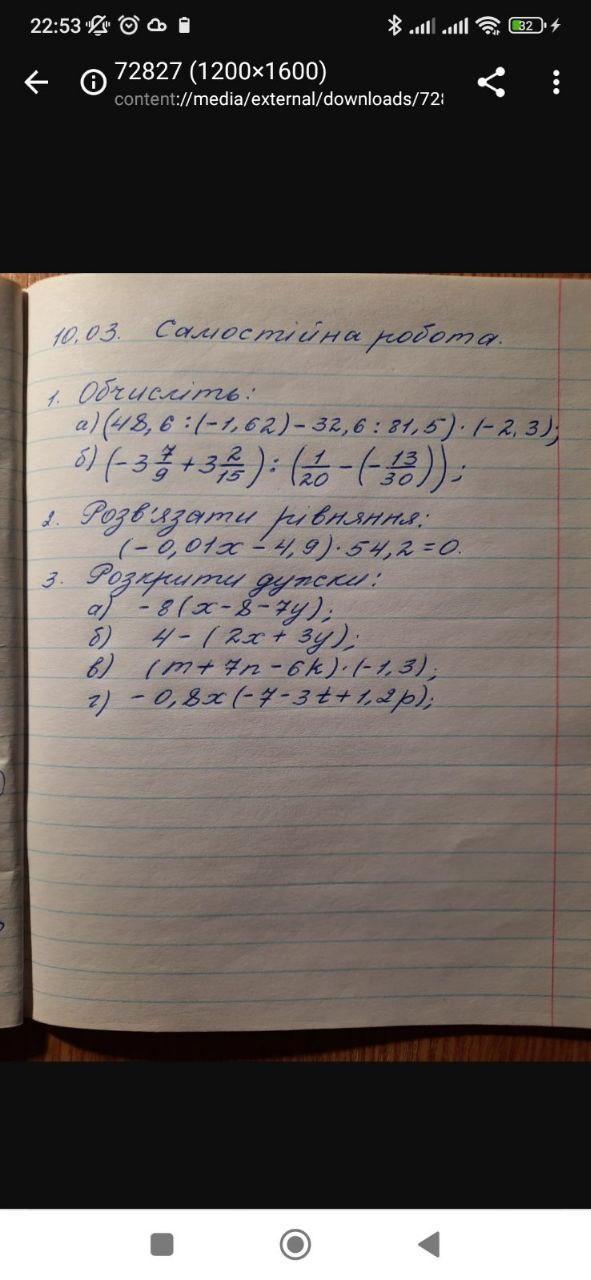 22:53
32
72827 (1200×1600)
content://media/external/downloads/728
10.03. Самостійна робота.
1. Обчисліть:
а) (48,6 : (-1,62) - 32,6 : 81,5) · (-2,3);
б) (-3 7/9 + 3 2/15) : (1/20 - (-13/30));
2. Розв'язати рівняння:
(-0,01x - 4,9) · 54,2 = 0.
3. Розкрити дужки:
а) -8(x-8-7y);
б) 4-(2x+3y);
в) (m+7n-6k)·(-1,3);
г) -0,8x(-7-3t+1,2p);